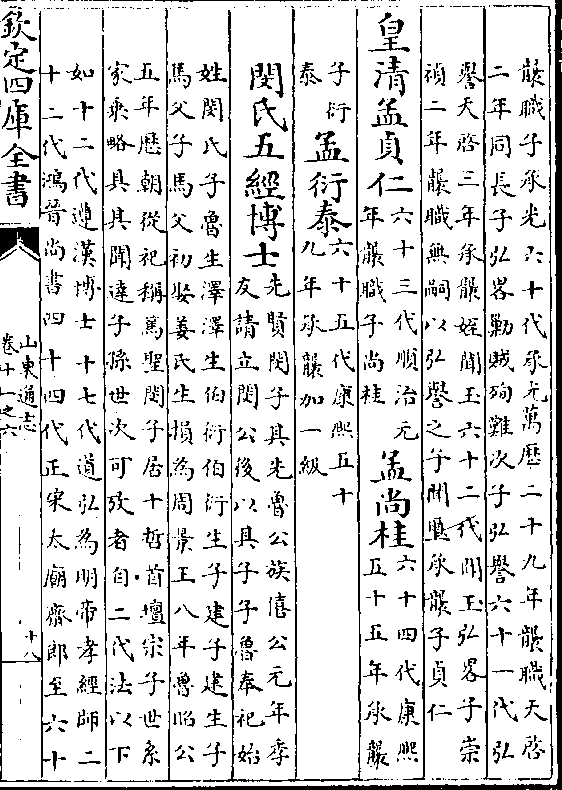 襲職子承光六十代承光萬歷二十九年襲職天啓
二年同長子弘畧勦賊殉難次子弘譽六十一代弘
譽天啓三年承襲姪聞玉六十二代聞玉弘畧子崇
禎二年襲職無嗣以弘譽之子聞璽承襲子貞仁
皇清孟貞仁六十三代順治元
年襲職子尚桂
孟尚桂六十四代康熙
五十五年承襲
子衍
泰
孟衍泰六十五代康熙五十
九年承襲加一級
閔氏五經博士先賢閔子其先魯公族僖公元年季
友請立閔公後以其子子魯奉祀始
姓閔氏子魯生澤澤生伯衍伯衍生子建子建生子
馬父子馬父初娶姜氏生損為周景王八年魯昭公
五年歷朝從祀稱篤聖閔子居十哲首壇宗子世系
家乗略具其聞達子孫世次可攷者自二代法以下
如十二代遵漢博士十七代道弘為明帝孝經師二
十二代鴻晉尚書四十四代正宋太廟齋郎至六十
欽定四庫全書
山東通志
卷十一之六
十八